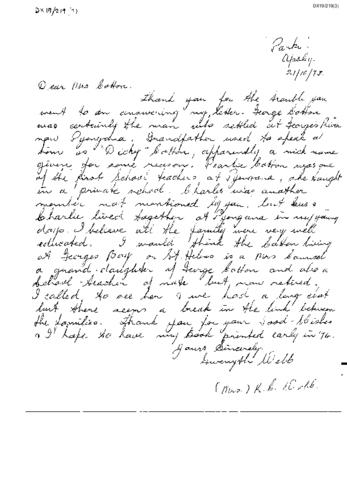 DX19/219 (3)
DX19/219(3)
'Parks'
Apsley.
21/10/75.
Dear Mrs Cotton.
Thank you for the trouble you
went to in answering my letter. George Cotton
was certainly the man who settled at Georges River
now Pyengana, Grandfather used to speak of
him as "Dicky" Cotton, apparently a nick name
given for some reason. Cotton was one
of the first School teachers at Pyengana, she taught
in a private school. Charles was another
member not mentioned by you, but &
Charlie lived together at Pyengana in my young
days. I believe all the family were very well
educated. I would think the Cotton living
at Georges Bay or St Helens is a Mrs
a grand-daughter of George Cotton and also a
School-teacher of note but now retired.
I called to see her & we had a long chat
but there seems a break in the link between
the families. Thank you for your Good-Wishes
& I hope to have my book printed early in '76.
Yours Sincerely.
Gwenyth Webb
(Mrs.) R. Webb.